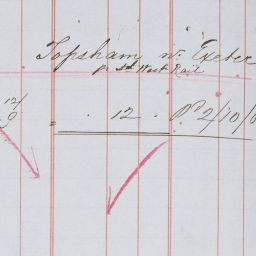 Topsham nr. Exeter
pr Sth West Rail
12/9 = . 12 . Pd 2/10/6